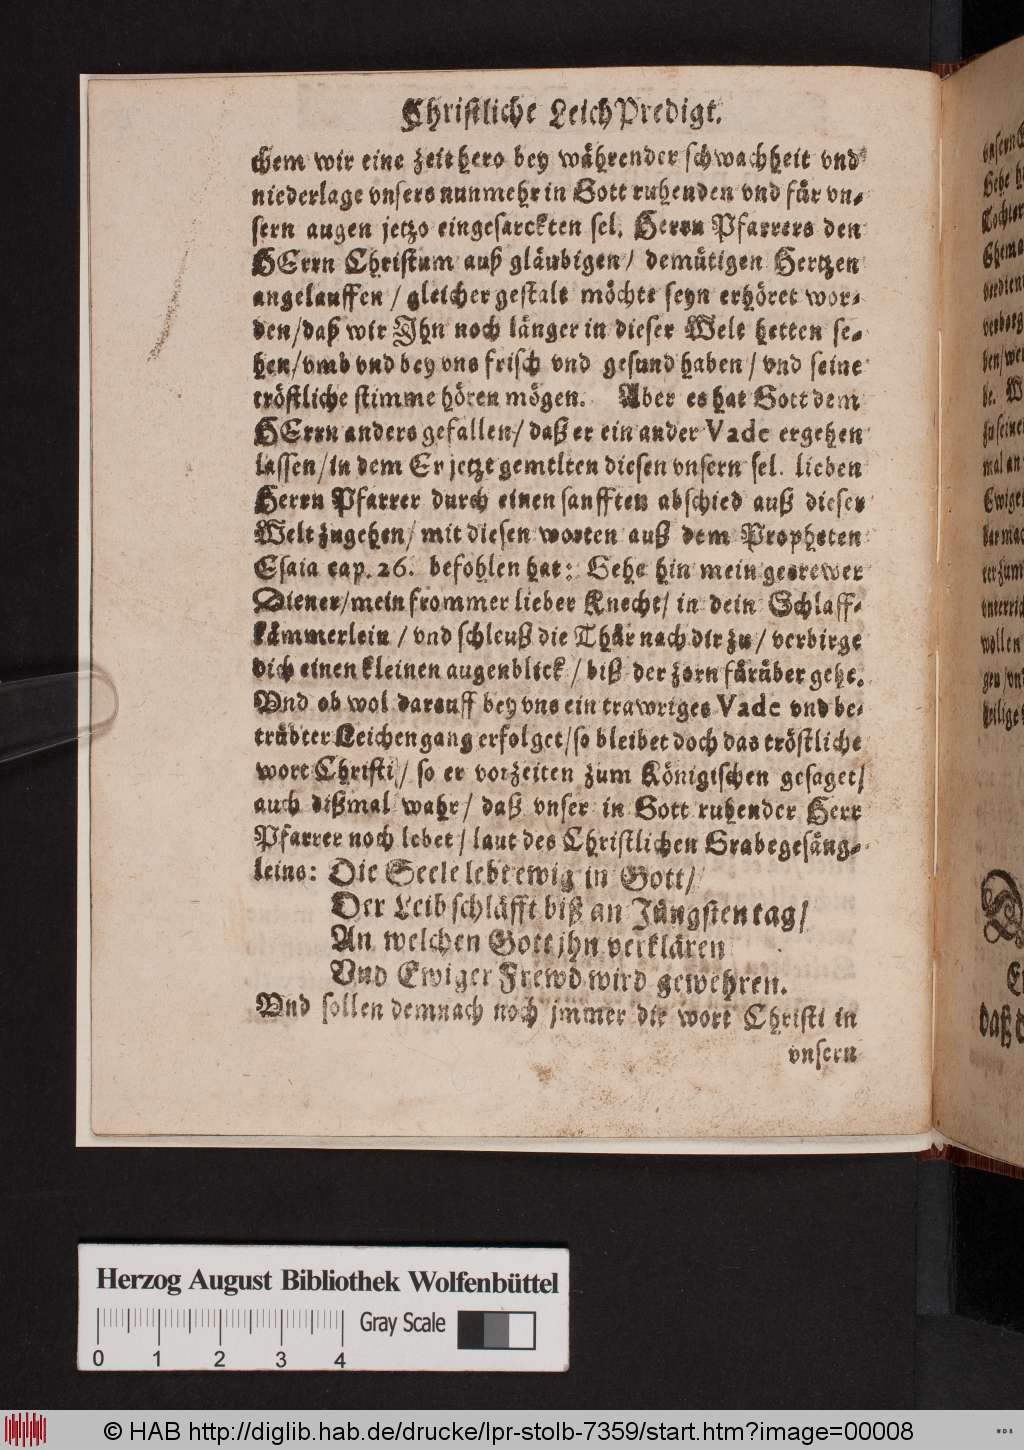 Christliche LeichPredigt.
chem wir eine zeit hero bey währender schwachheit vnd
niederlage vnsers nunmehr in Gott ruhenden vnd für vn-
sern augen jetzo eingesarckten sel. Herrn Pfarrers den
HErrn Christum auß gläubigen / demütigen Hertzen
angelauffen / gleicher gestalt möchte seyn erhöret wor-
den/daß wir Ihn noch länger in dieser Welt hetten se-
hen/vmb vnd bey vns frisch vnd gesund haben / vnd seine
tröstliche stimme hören mögen. Aber es hat Gott dem
HErrn anders gefallen/ daß er ein ander Vade ergehen
lassen/in dem Er jetzt gemelten diesen vnsern sel. lieben
Herrn Pfarrer durch einen sanfften abschied auß dieser
Welt zugehen/ mit diesen worten auß dem Propheten
Esaia cap. 26. befohlen hat: Gehe hin mein getrewer
Diener/mein frommer lieber Knecht/ in dein Schlaff-
kämmerlein / vnd schleuß die Thür nach dir zu / verbirge
dich einen kleinen augenblick / biß der zorn fürüber gehe.
Vnd ob wol darauff bey vns ein trawriges Vade vnd be-
trübter Leichengang erfolget/so bleibet doch das tröstliche
wort Christi / so er vorzeiten zum Königischen gesaget/
auch dißmal wahr/ daß vnser in Gott ruhender Herr
Pfarrer noch lebet / laut des Christlichen Grabegesäng-
leins: Die Seele lebt ewig in Gott/
Der Leib schläfft biß an Jüngsten tag/
An welchen Gott jhn verklären
Vnd Ewiger Frewd wird gewehren.
Vnd sollen demnach noch jmmer die wort Christi in
vnsern
Herzog August Bibliothek Wolfenbüttel
Gray Scale
0 1 2 3 4
© HAB http://diglib.hab.de/drucke/lpr-stolb-7359/start.htm?image=00008